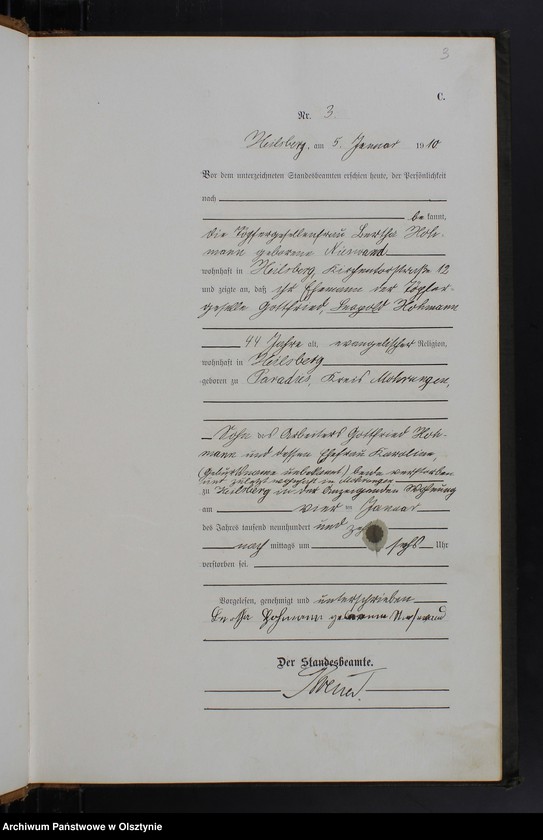 3
C.
Nr. 3.
Heilsberg, am 5. Januar 1910
Vor dem unterzeichneten Standesbeamten erschien heute, der Persönlichkeit
nach
bekannt,
die Töpfergesellenfrau Bertha Hoh-
mann geborene
wohnhaft in Heilsberg, Kirchentorstraße 12
und zeigte an, daß ihr Ehemann der Töpfer-
geselle Gottfried, Leopold Hohmann
44 Jahre alt, evangelischer Religion,
wohnhaft in Heilsberg
geboren zu Paradies, Kreis Mohrungen,
Sohn des Arbeiters Gottfried Hoh-
mann und dessen Ehefrau Karoline,
(Geburtsname unbekannt) beide verstorben
und zuletzt wohnhaft in Mohrungen
zu Heilsberg in der Anzeigenden Wohnung
am vier ten Januar
des Jahres tausend neunhundert und
nach mittags um sechs Uhr
verstorben sei.
Vorgelesen, genehmigt und unterschrieben
Bertha Hohmann
Der Standesbeamte.
Archiwum Państwowe w Olsztynie